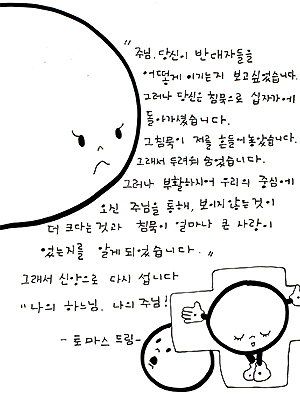 "주님. 당신이 반대자들을
어떻게 이기는지 보고싶었습니다.
그러나 당신은 침묵으로 십자가에
돌아가셨습니다.
그침묵이 저를 흔들어놓았습니다.
그래서 두려워 숨었습니다.
그러나 부활하시어 우리의 중심에
오신 주님을 통해, 보이지 않는것이
더 크다는것과 침묵이 얼마나 큰 사랑이
었는지를 알게 되었습니다."
그래서 신앙으로 다시 섭니다
"나의 하느님, 나의 주님!
- 토마스 드림 -